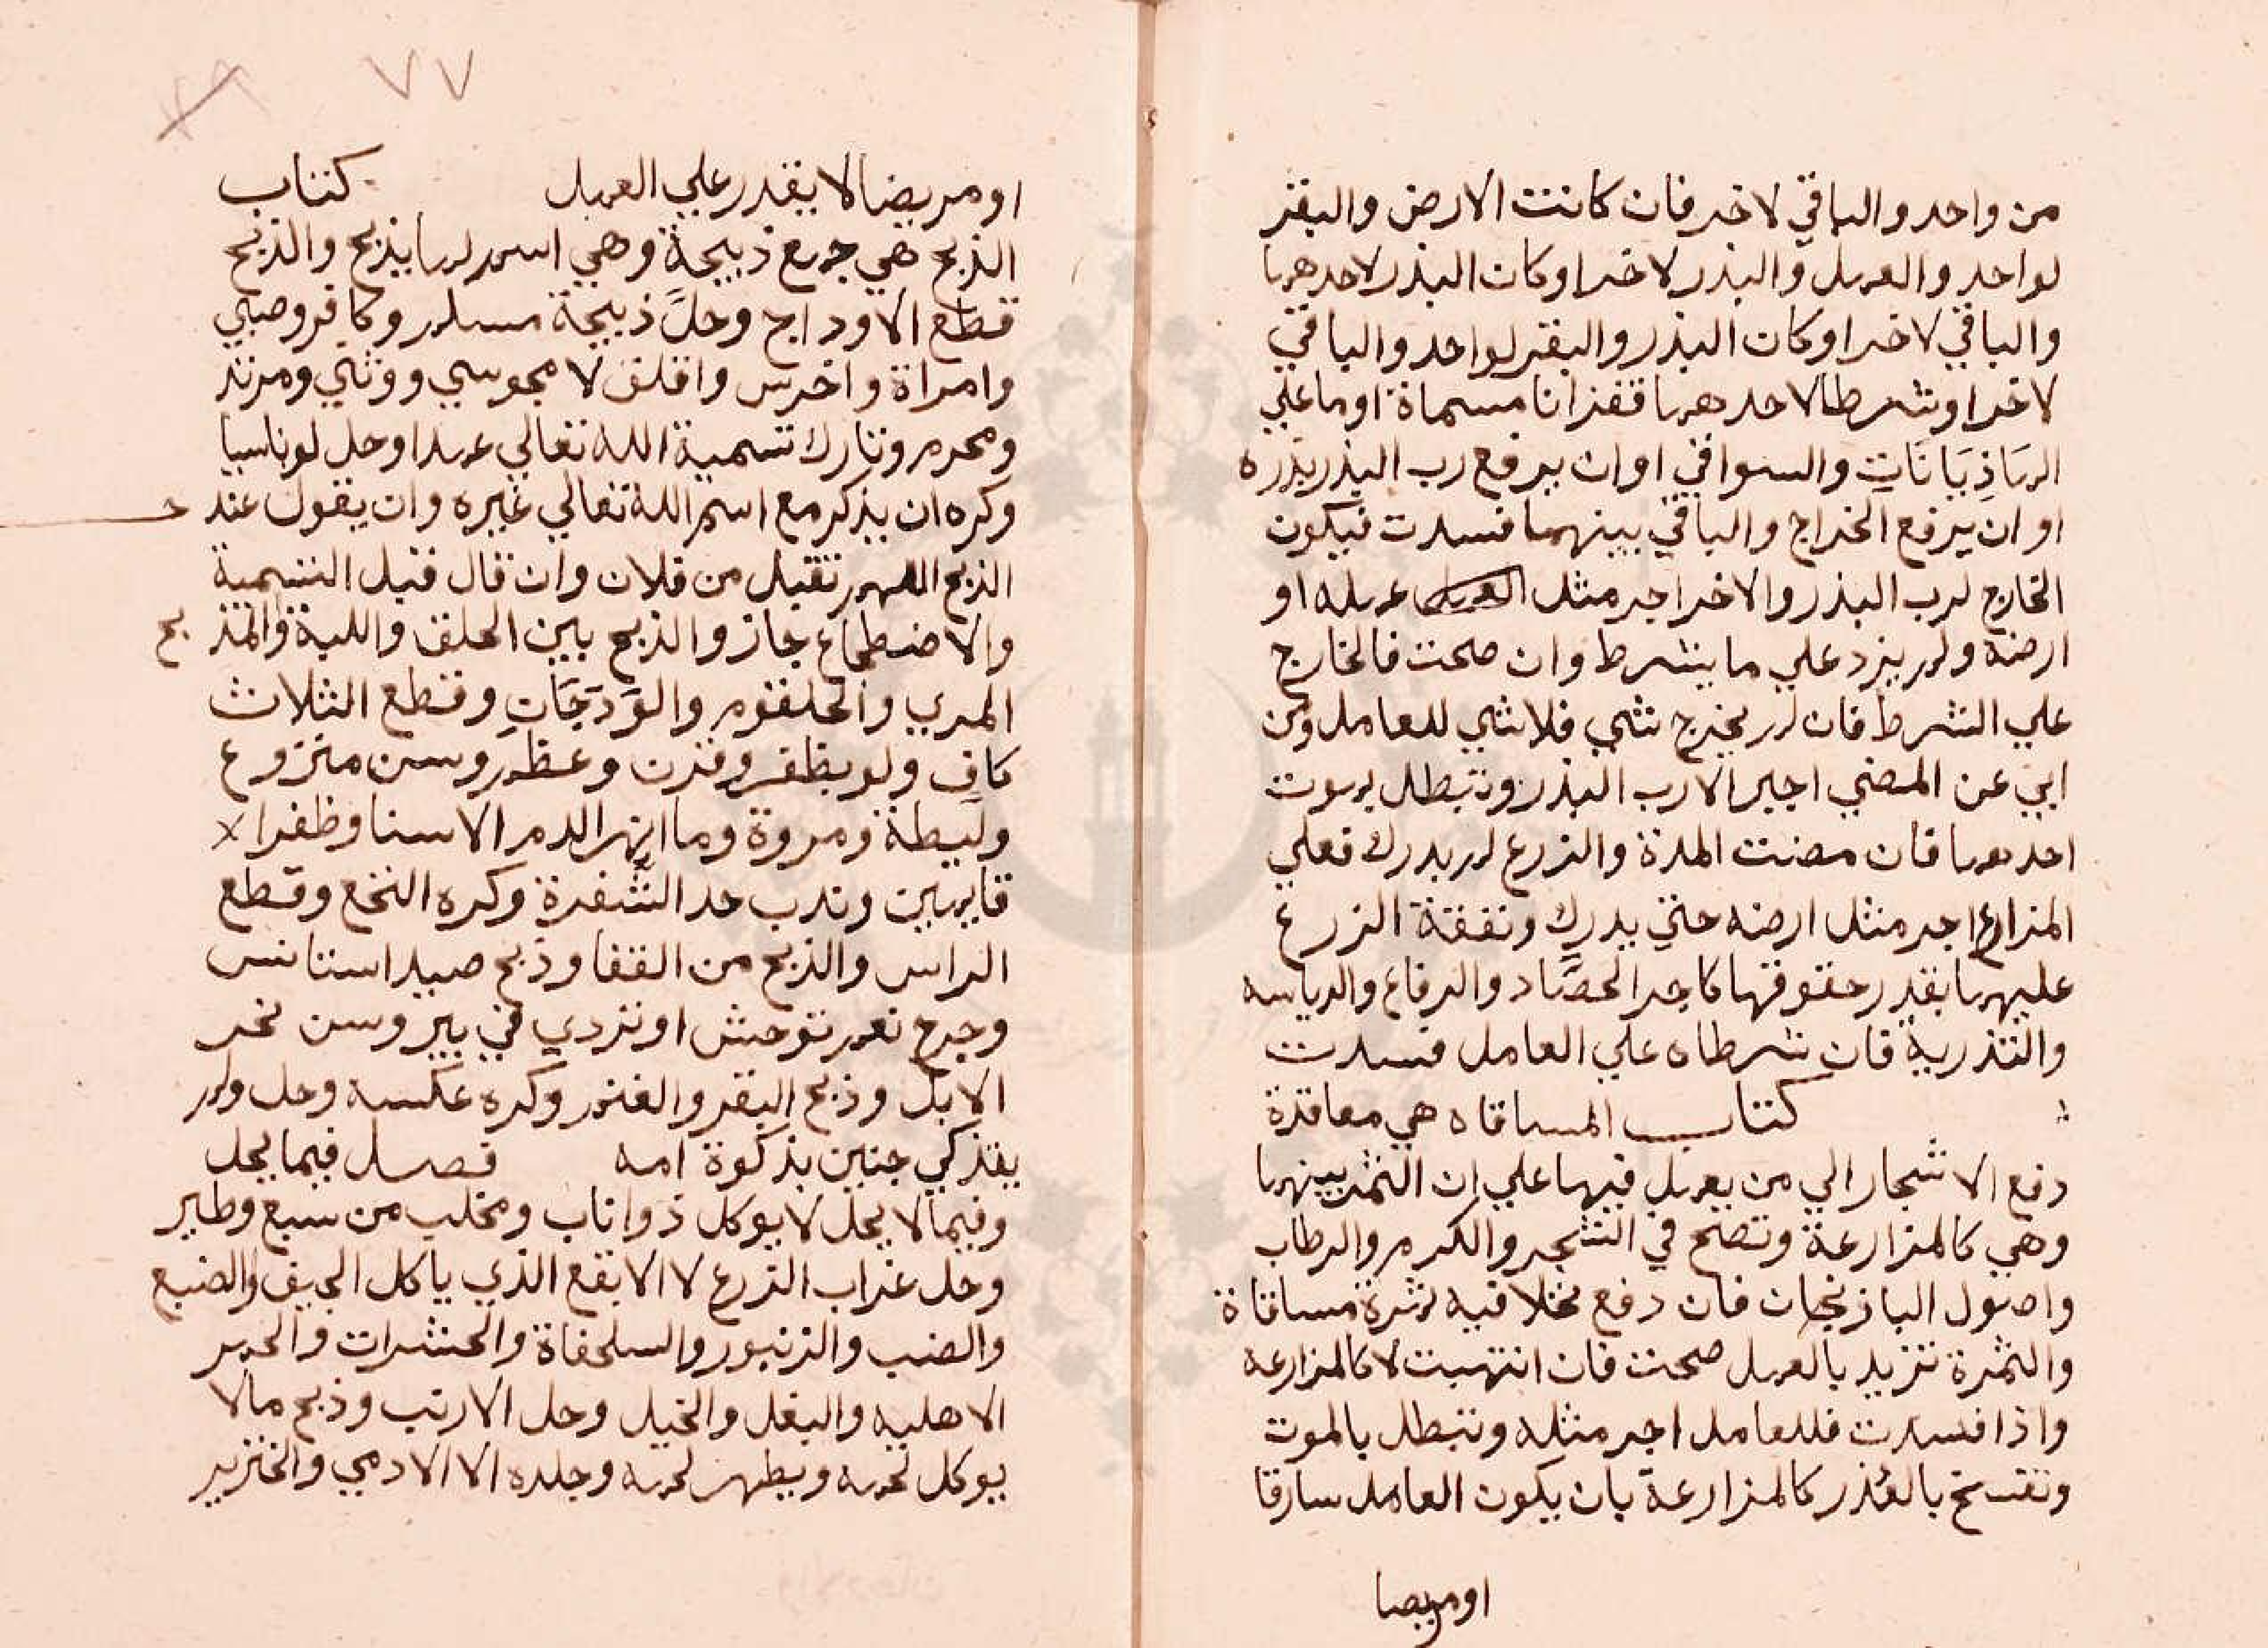 من واحد والباقي لاخر فان كانت الارض والبقر
لواحد والعمل والبذر لاخر او كان البذر لاحدهما
والباقي لاخر او كان البذر والبقر لواحد والباقي
لاخر او شرطا لاحدهما قفزانا مسماة او ما علي
الماذِيَانَاتِ والسواقي او ان يرفع رب البذر بذره
او ان يرفع الخراج والباقي بينهما فسدت فيكون
الخارج لرب البذر والاخر اجر مثل عمله او
ارضه ولم يزد علي ما يشرط وان صحت فالخارج
علي الشرط فان لم يخرج شي فلا شي للعامل ومن
ابي عن المضي اجبر الا رب البذر وتبطل بموت
احدهما فان مضت المدة والزرع لم يدرك فعلي
المزارع اجر مثل ارضه حتي يدرك ونفقة الزرع
عليهما بقدر حقوقهما كاجر الحصَّاد والرفاع والدياسه
والتذرية فان شرطاه علي العامل فسدت
كتاب المساقاه هي معاقدة
دفع الاشجار الي من يعمل فيها علي ان الثمر بينهما
وهي كالمزارعة وتصح في الشجر والكرم والرطاب
واصول الباذنجان فان دفع نخلا فيه ثمرة مساقاة
والثمرة تزيد بالعمل صحت فان انتهت لا كالمزارعه
واذا فسدت فللعامل اجر مثله وتبطل بالموت
وتفسخ بالعذر كالمزارعة بان يكون العامل سارقا
او مريضا
٧٧
او مريضا لا يقدر علي العمل كتاب
الذبح هي جمع ذبيحة وهي اسم لما يذبح والذبح
قطع الاوداج وحلَّ ذبيحة مسلم وكافر وصبي
وامراة واخرس واقلف لا مجوسي ووثني ومرتد
ومحرم وتارك تسمية الله تعالي عمدا وحل لو ناسيا
وكره ان يذكر مع اسم الله تعالي غيره وان يقول عند
الذبح اللهم تقبل من فلان وان قال قبل التسمية
والاضطجاع جاز والذبح بين الحلق واللبة والمذبح
المري والحلقوم والوَدَجَانِ وقطع الثلاث
كافٍ ولو بظفر وقرن وعظم وسن منزوع
وليطة ومروة وما انهر الدم الا سنا وظفرا
قايمين وندب حد الشفرة وكره النخع وقطع
الراس والذبح من القفا وذبح صيد استانس
وجرح نعم توحش او تردي في بير وسن نحر
الابل وذبح البقر والغنم وكره عكسه وحل ولم
يتذكي جنين بذكوة امه فصل فيما يحل
وفيما لا يحل لا يوكل ذو اناب ومخلب من سبع وطاير
وحل غراب الزرع لا الابقع الذي ياكل الجيف والضبع
والضب والزنبور والسلحفاة والحشرات والحمر
الاهليه والبغل والخيل وحل الارنب وذبح ما لا
يوكل لحمه ويطهر لحمه وجلده الا الادمي والخنزير